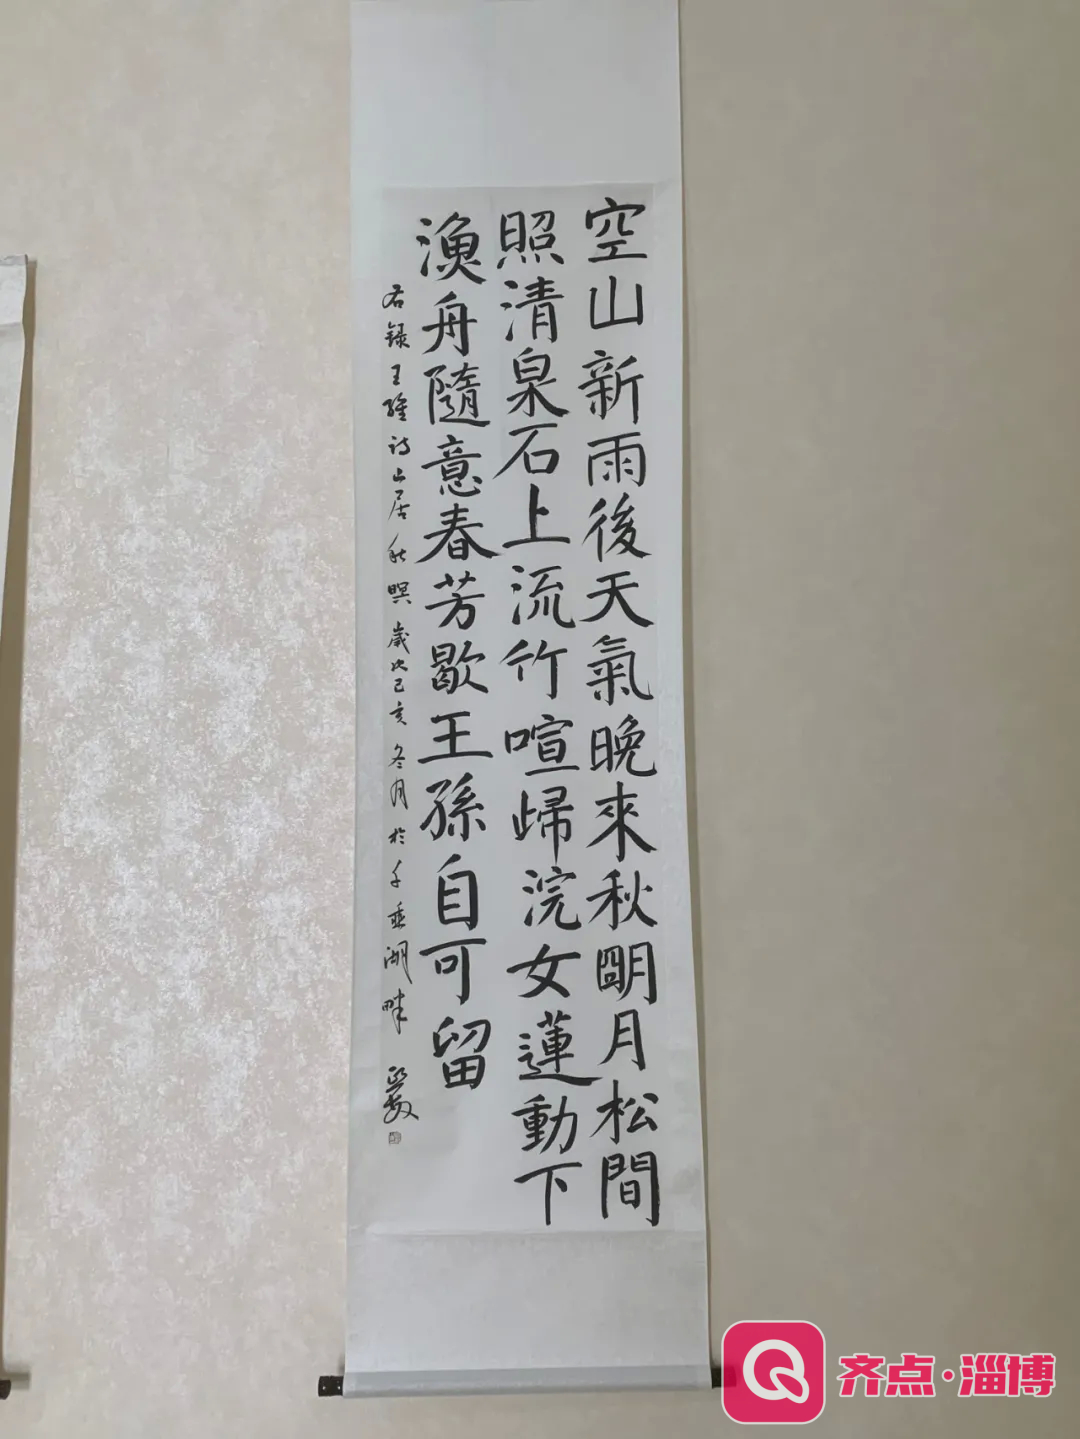 空山新雨後天氣晚來秋明月松間
照清泉石上流竹喧歸浣女蓮動下
漁舟隨意春芳歇王孫自可留
右録王維詩山居秋暝歲次己亥冬月於千乘湖畔
齐点·淄博